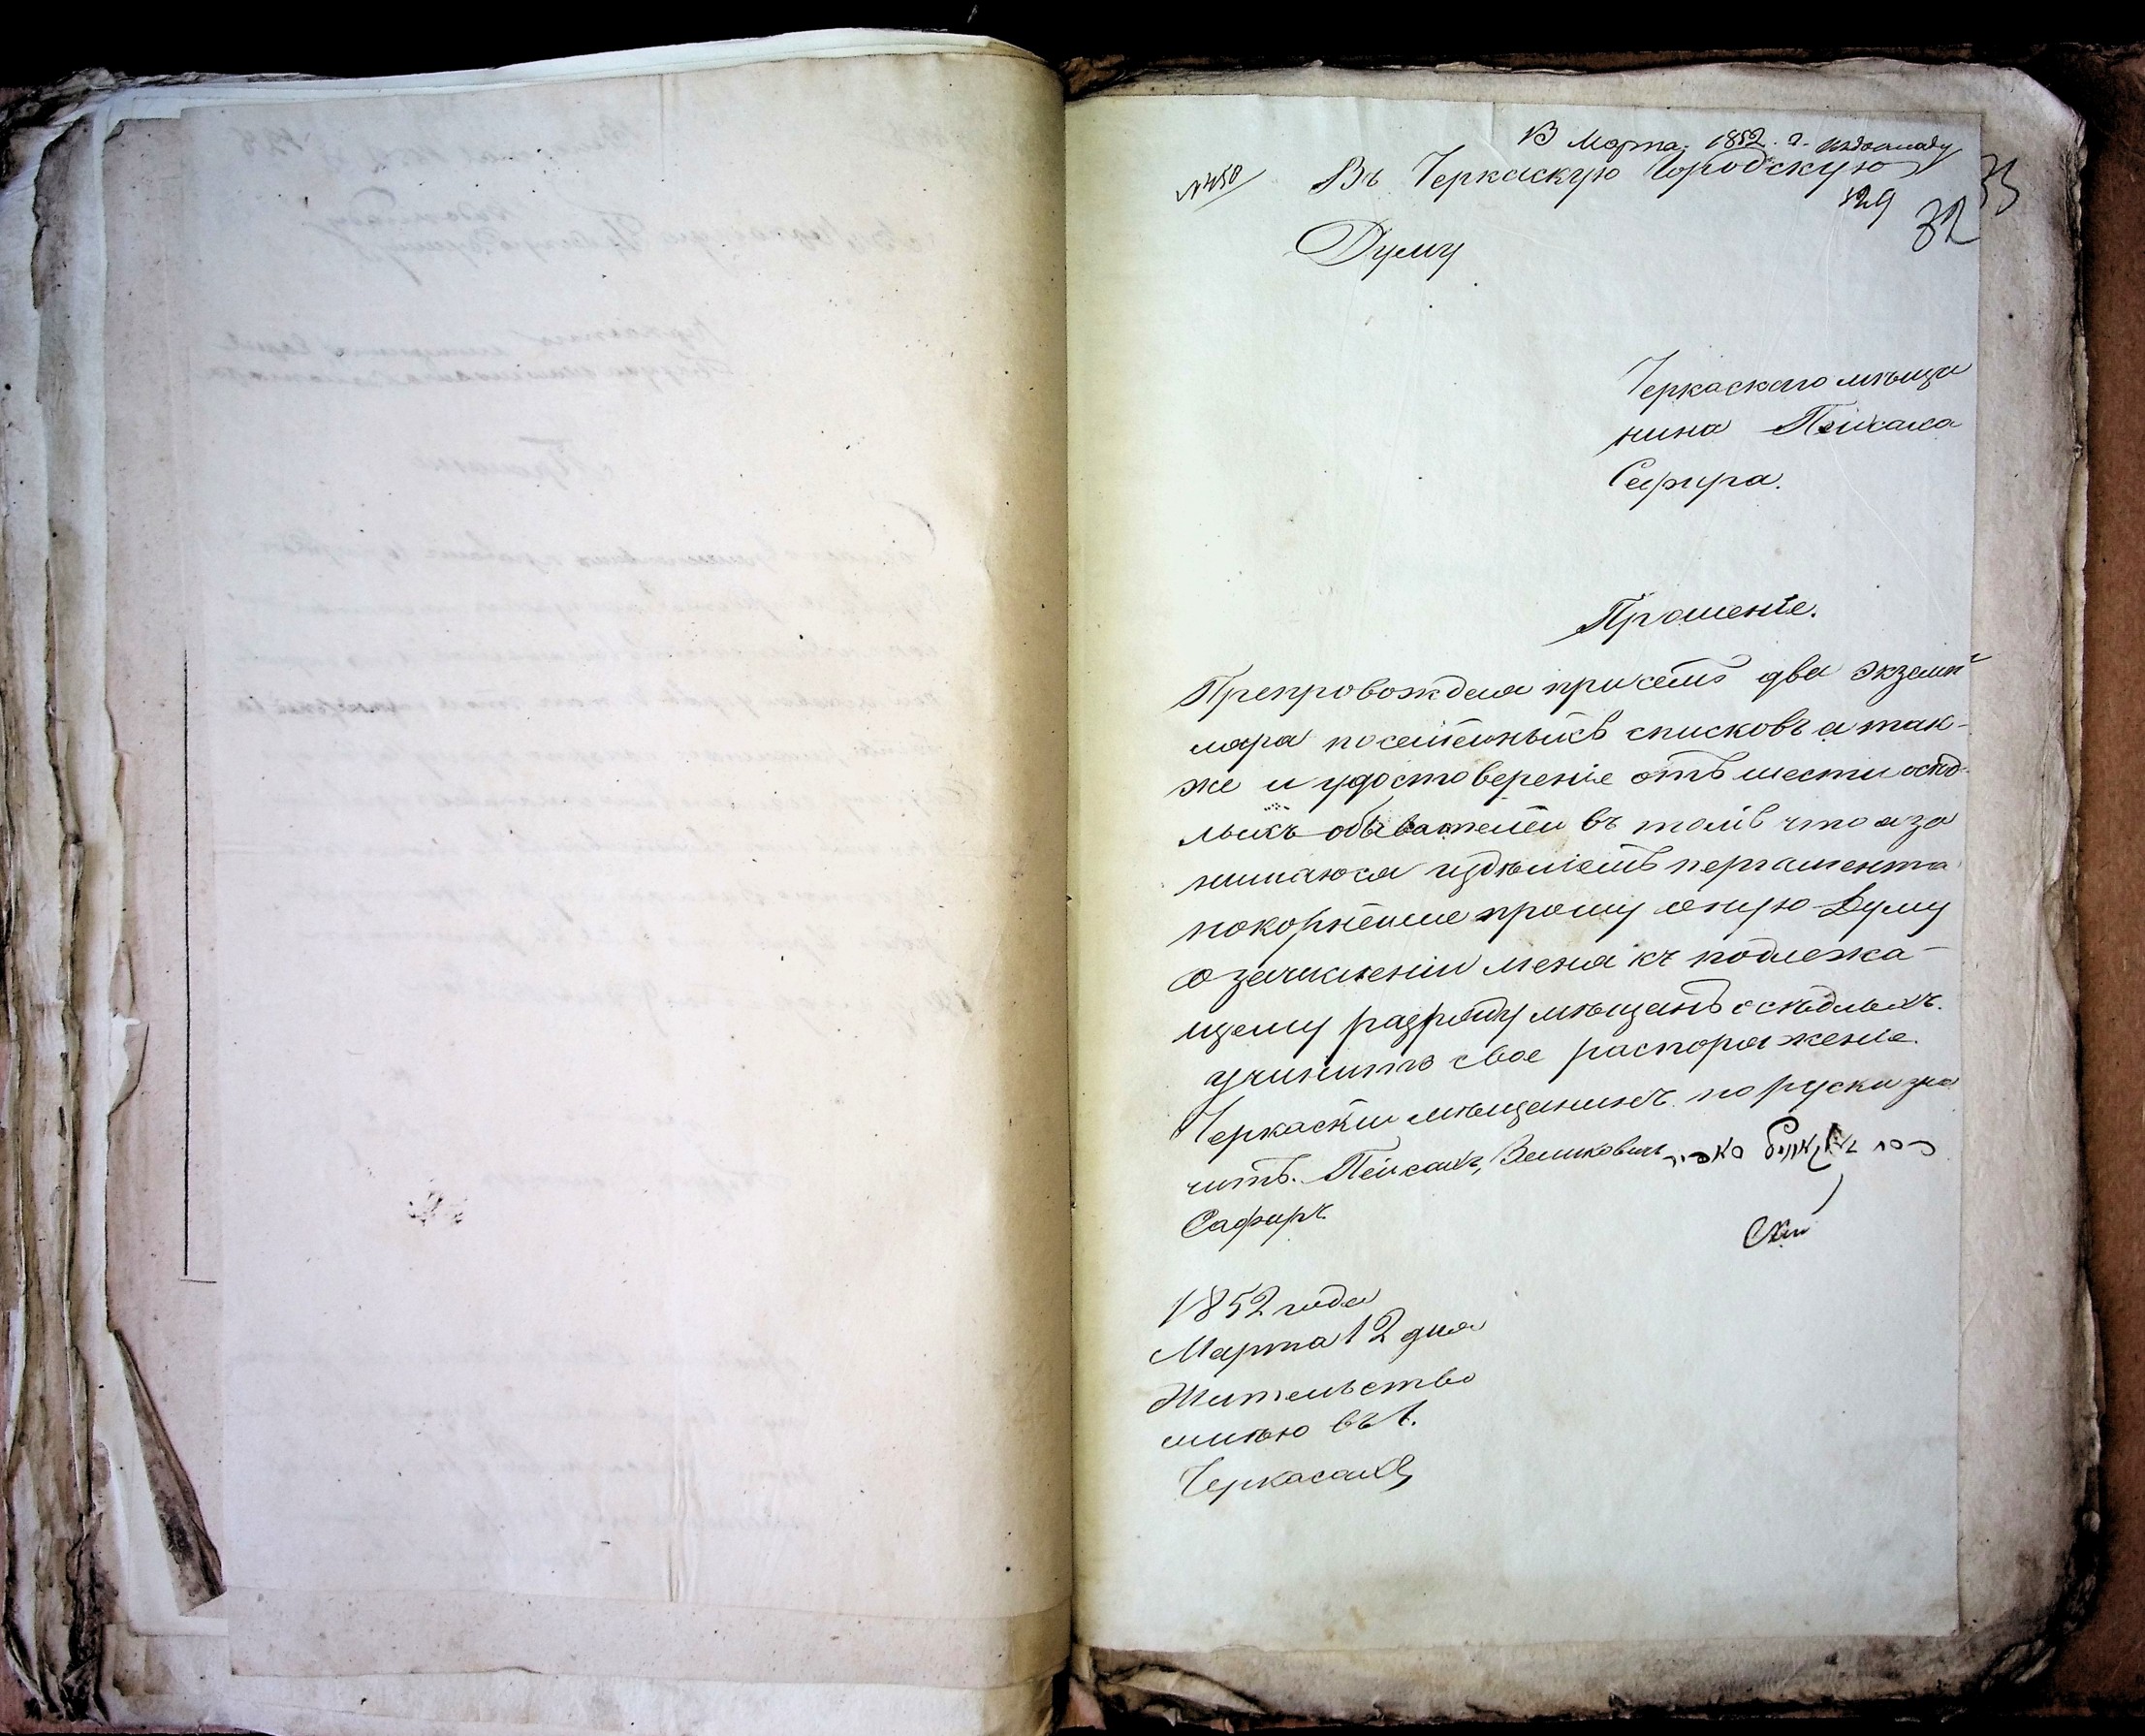 13 Марта 1852. г. к докладу
№ 450 Въ Черкаскую Городскую
129 32 33
Думу
Черкаского мѣща
нина Пейсаха
Сафира.
Прошеніе.
Препровождая присемъ два экземп
ляра посемейныхъ списковъ а так-
же и удостовереніе отъ шести осѣд-
лыхъ обывателей въ томъ что я за
нимаюся издѣліемъ пергамента
покорнейше прошу оную Думу
о зачисленіи меня къ подлежа-
щему разряду мѣщанъ осѣдлыхъ.
учинить свое распоряженіе.
Черкаскій мѣщанинъ по руски зна
читъ. Пейсахъ, Зеликовичъ
Сафиръ
1852 года
Марта 12 дня
Жительство
имѣю въ г.
Черкасахъ